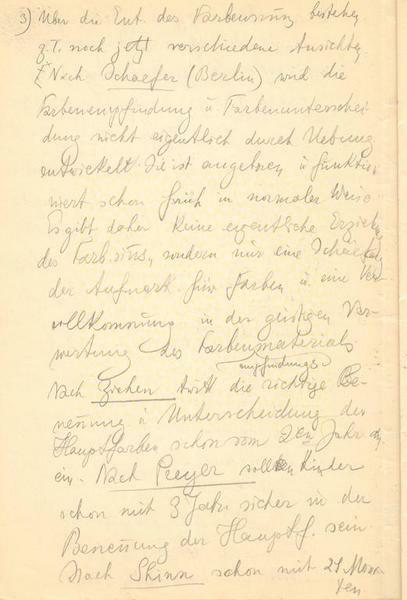 3) Über die Ent. des Farbensinns bestehen
z.T. noch jetzt verschiedene Ansichten
Nach Schaefer (Berlin) wird die
Farbenempfindung u. Farbenunterschei
dung nicht eigentlich durch Uebung
entwickelt. Sie ist angeboren u. funktio
niert schon früh in normaler Weise
Es gibt daher keine eigentliche Erziehg
des Farbsinns, sondern nur eine Schärfg
der Aufmerk. für Farben u. eine Ver
vollkommnung in der geistigen Ver-
wertung des Farbenmaterials
empfindungs-
Nach Ziehen tritt die richtige Be-
nennung u. Unterscheidung der
Hauptfarben schon vom 2ten Jahr
ein. Nach Preyer sollen Kinder
schon mit 3 Jahr. sicher in der
Benennung der Hauptf. sein.
Nach Shinn schon mit 21 Mona
ten